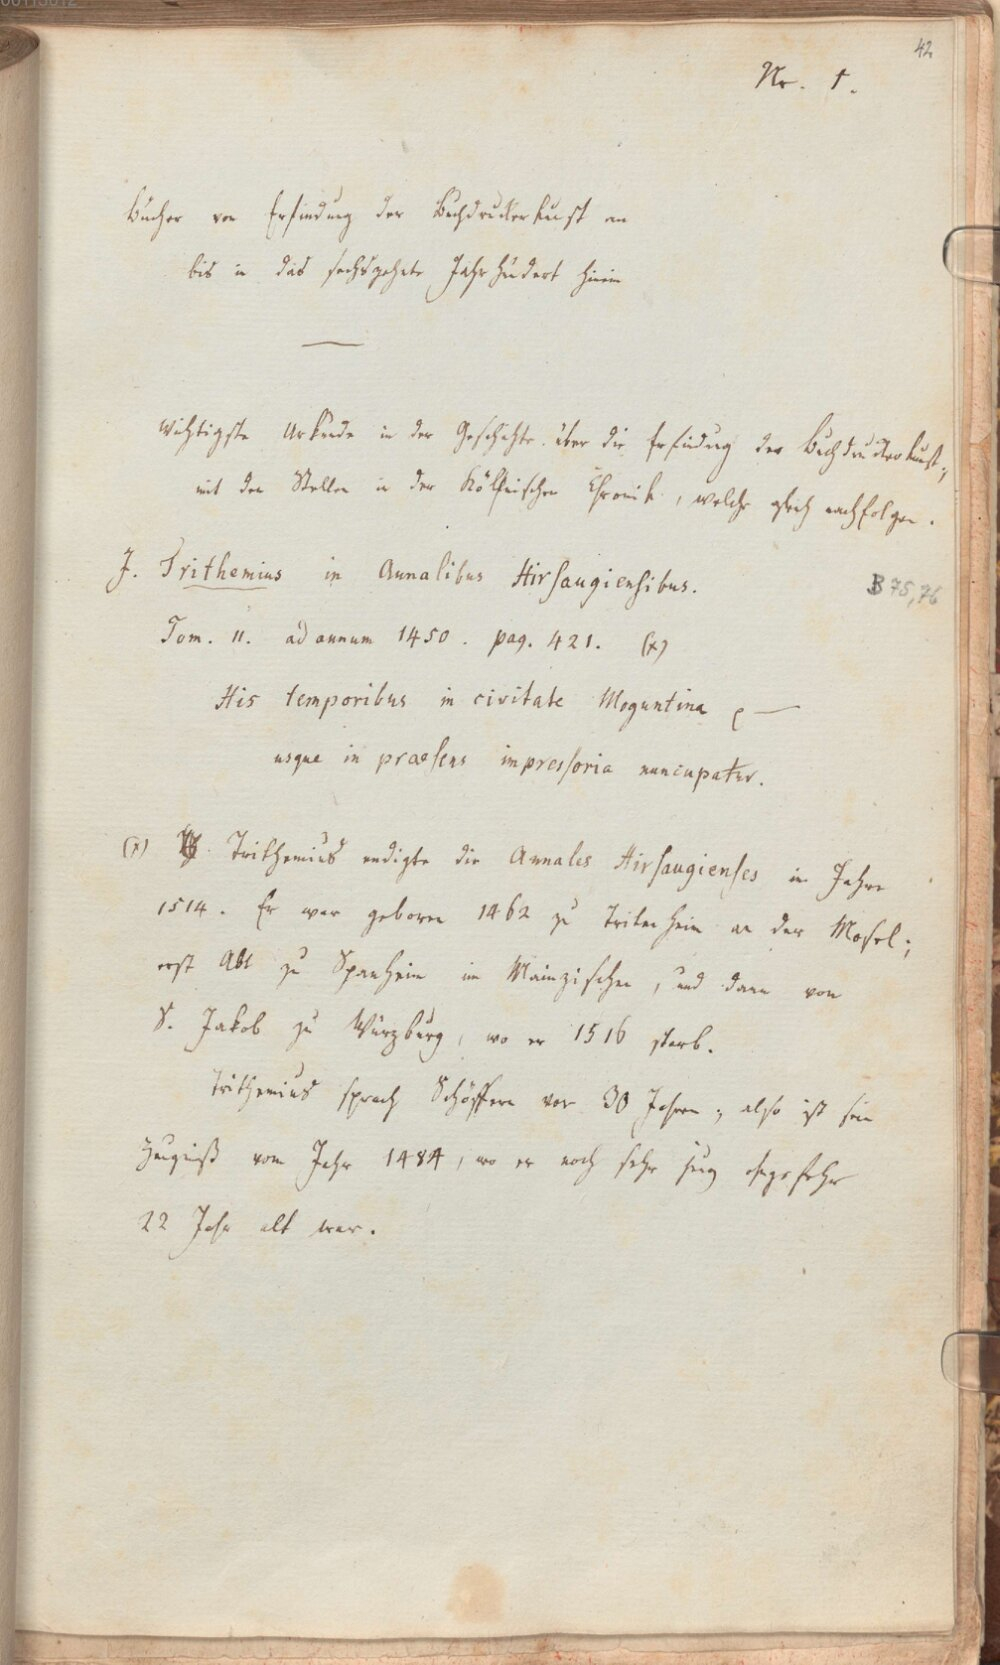 42
Nr. 1.
Bücher von Erfindung der Buchdruckerkunst an
bis in das sechszehnte Jahrhundert hinein
Wichtigste Urkunde in der Geschichte über die Erfindung der Buchdruckerkunst,
mit den Stellen in der Kölnischen Chronik, welche gleich nachfolgen.
J. Trithemius in Annalibus Hirsaugiensibus.
B 75, 76
Tom. II. ad annum 1450. pag. 421. (x)
His temporibus in civitate Moguntina —
usque in praesens impressoria nuncupatur.
(x) Trithemius endigte die Annales Hirsaugienses im Jahre
1514. Er war geboren 1462 zu Tritenheim an der Mosel;
erst Abt zu Spanheim im Mainzischen, und dann von
S. Jakob zu Würzburg, wo er 1516 starb.
Trithemius sprach Schöffern vor 30 Jahren; also ist sein
Zeugniß vom Jahr 1484, wo er noch sehr jung ohngefehr
22 Jahr alt war.